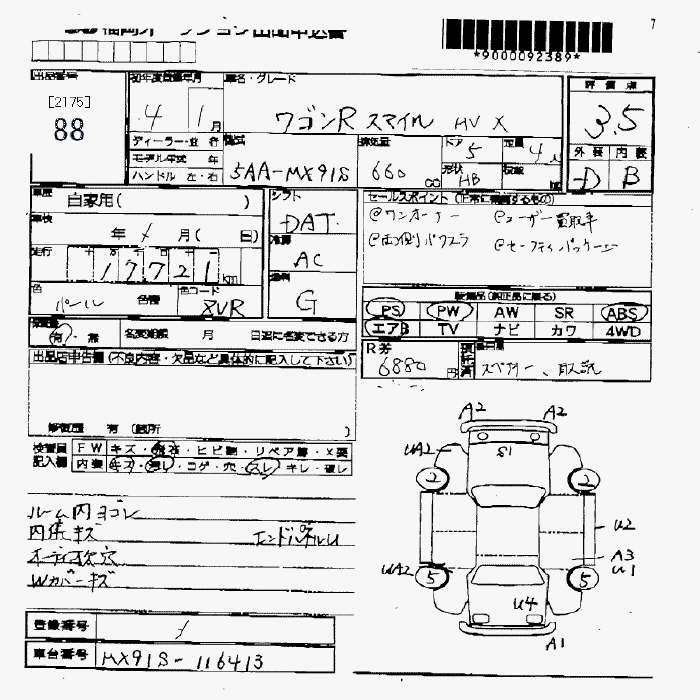 *9000092389*
7
出品番号
[2175]
88
初年度登録年月
4 1月
車名・グレード
ワゴンR スマイル HV X
評価点
3.5
外装 内装
D B
ディーラー・並行
モデル年式 年
ハンドル 左・右
型式
5AA-MX91S
排気量
660 cc
ドア
5
形状
HB
定員
4人
車歴
自家用( )
シフト
DAT
セールスポイント
@ワンオーナー @ユーザー買取車
@両側パワスラ @セーフティパッケージ
車検
年 / 月( 日)
冷房
AC
走行
17721km
燃料
G
色
パール 色替
色コード
ZVR
装備品(純正品に限る)
PS PW AW SR ABS
エアB TV ナビ カワ 4WD
有・無 名変期限 月 日迄に名変できる方
R券
6880円
スペアキー、取説
出品店申告欄(不良内容・欠品など具体的に記入して下さい)
修復歴 有(箇所 )
検査員
記入欄
FW キズ・飛石・ヒビ割・リペア跡・X要
内装 キズ・汚レ・コゲ・穴・スレ・キレ・破レ
ルーム内ヨゴレ
内張キズ エンドパネルU
オーディオ欠穴
Wカバーキズ
登録番号 /
車台番号 MX91S-116413
A2 A2
UA2 S1
2 2
U2
A3
UA2 U1
5 5
U4
A1